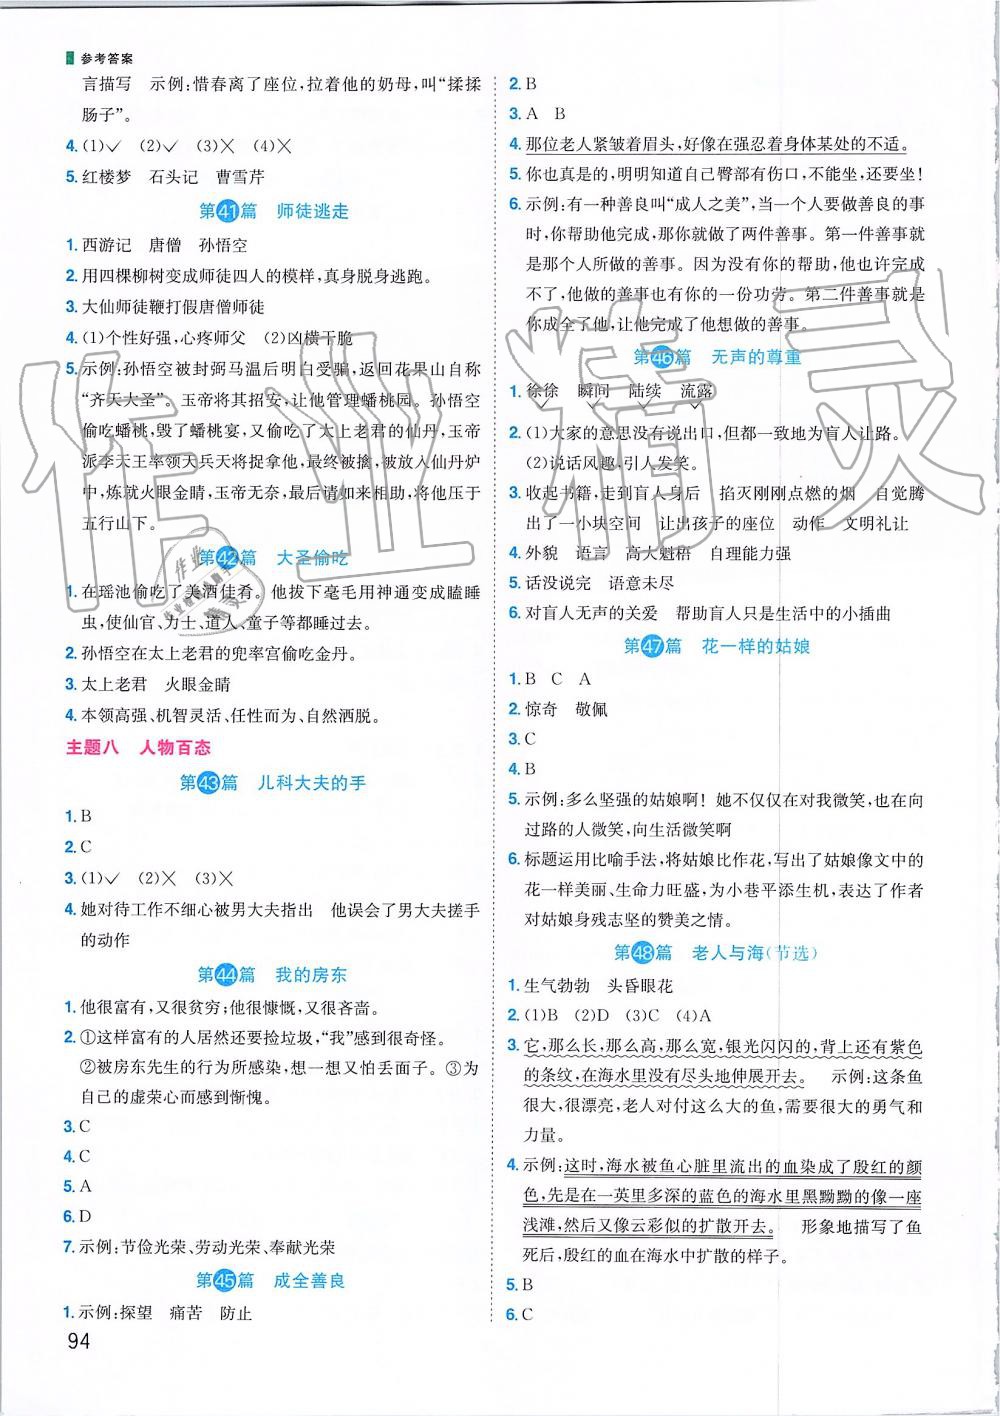 参考答案
言描写　示例:惜春离了座位,拉着他的奶母,叫“揉揉
肠子”。
4. (1)✓　(2)✓　(3)✕　(4)✕
5. 红楼梦　石头记　曹雪芹
第41篇　师徒逃走
1. 西游记　唐僧　孙悟空
2. 用四棵柳树变成师徒四人的模样,真身脱身逃跑。
3. 大仙师徒鞭打假唐僧师徒
4. (1)个性好强,心疼师父　(2)凶横干脆
5. 示例:孙悟空被封弼马温后明白受骗,返回花果山自称
“齐天大圣”。玉帝将其招安,让他管理蟠桃园。孙悟空
偷吃蟠桃,毁了蟠桃宴,又偷吃了太上老君的仙丹,玉帝
派李天王率领天兵天将捉拿他,最终被擒,被放入仙丹炉
中,炼就火眼金睛,玉帝无奈,最后请来如来,将他压于
五行山下。
第42篇　大圣偷吃
1. 在瑶池偷吃了美酒佳肴。他拔下毫毛用神通变成瞌睡
虫,使仙官、力士、道人、童子等都睡过去。
2. 孙悟空在太上老君的兜率宫偷吃金丹。
3. 太上老君　火眼金睛
4. 本领高强、机智灵活、任性而为、自然洒脱。
主题八　人物百态
第43篇　儿科大夫的手
1. B
2. C
3. (1)✓　(2)✕　(3)✕
4. 她对待工作不细心被男大夫指出　他误会了男大夫搓手
的动作
第44篇　我的房东
1. 他很富有,又很贫穷;他很慷慨,又很吝啬。
2. ①这样富有的人居然还要捡垃圾,“我”感到很奇怪。
②被房东先生的行为所感染,想一想又怕丢面子。③为
自己的虚荣心而感到惭愧。
3. C
4. C
5. A
6. D
7. 示例:节俭光荣、劳动光荣、奉献光荣
第45篇　成全善良
1. 示例:探望　痛苦　防止
94
2. B
3. A　B
4. 那位老人紧皱着眉头,好像在强忍着身体某处的不适。
5. 你也真是的,明明知道自己臀部有伤口,不能坐,还要坐!
6. 示例:有一种善良叫“成人之美”,当一个人要做善良的事
时,你帮助他完成,那你就做了两件善事。第一件善事就
是那个人所做的善事。因为没有你的帮助,他也许完成
不了,他做的善事也有你的一份功劳。第二件善事就是
你成全了他,让他完成了他想做的善事。
第46篇　无声的尊重
1. 徐徐　瞬间　陆续　流露
2. (1)大家的意思没有说出口,但都一致地为盲人让路。
(2)说话风趣,引人发笑。
3. 收起书籍,走到盲人身后　掐灭刚刚点燃的烟　自觉腾
出了一小块空间　让出孩子的座位　动作　文明礼让
4. 外貌　语言　高大魁梧　自理能力强
5. 话没说完　语意未尽
6. 对盲人无声的关爱　帮助盲人只是生活中的小插曲
第47篇　花一样的姑娘
1. B　C　A
2. 惊奇　敬佩
3. C
4. B
5. 示例:多么坚强的姑娘啊!她不仅仅在对我微笑,也在向
过路的人微笑,向生活微笑啊
6. 标题运用比喻手法,将姑娘比作花,写出了姑娘像文中的
花一样美丽、生命力旺盛,为小巷平添生机,表达了作者
对姑娘身残志坚的赞美之情。
第48篇　老人与海(节选)
1. 生气勃勃　头昏眼花
2. (1)B　(2)D　(3)C　(4)A
3. 它,那么长,那么高,那么宽,银光闪闪的,背上还有紫色
的条纹,在海水里没有尽头地伸展开去。　示例:这条鱼
很大,很漂亮,老人对付这么大的鱼,需要很大的勇气和
力量。
4. 示例:这时,海水被鱼心脏里流出的血染成了殷红的颜
色,先是在一英里多深的蓝色的海水里黑黝黝的像一座
浅滩,然后又像云彩似的扩散开去。　形象地描写了鱼
死后,殷红的血在海水中扩散的样子。
5. B
6. C
作业精灵